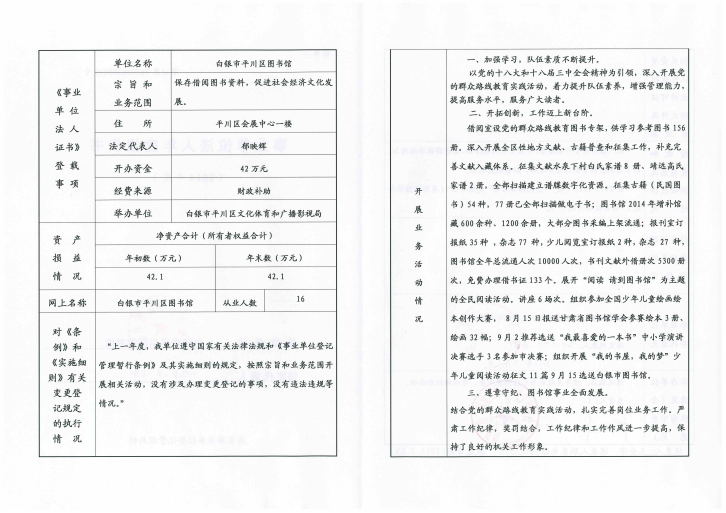 《事业
单位
法人
证书》
登载
事项
单位名称 白银市平川区图书馆
宗旨和
业务范围
保存借阅图书资料，促进社会经济文化发
展。
住所 平川区会展中心一楼
法定代表人 郁映辉
开办资金 42万元
经费来源 财政补助
举办单位 白银市平川区文化体育和广播影视局
资产
损益
情况
净资产合计（所有者权益合计）
年初数（万元） 年末数（万元）
42.1 42.1
网上名称 白银市平川区图书馆 从业人数 16
对《条
例》和
《实施细
则》有关
变更登
记规定
的执行
情况
“上一年度，我单位遵守国家有关法律法规和《事业单位登记
管理暂行条例》及其实施细则的规定，按照宗旨和业务范围开
展相关活动，没有涉及办理变更登记的事项，没有违法违规等
情况。”
开
展
业
务
活
动
情
况
一、加强学习，队伍素质不断提升。
以党的十八大和十八届三中全会精神为引领，深入开展党
的群众路线教育实践活动，着力提升队伍素养，增强管理能力，
提高服务水平，服务广大读者。
二、开拓创新，工作迈上新台阶。
借阅室设党的群众路线教育图书专架，供学习参考图书156
册。深入开展全区性地方文献、古籍普查和征集工作，补充完
善文献入藏体系。征集文献水泉下村白氏家谱8册、靖远高氏
家谱2册，全部扫描建立谱牒数字化资源。征集古籍（民国图
书）54种，77册已全部扫描做电子书；图书馆2014年增补馆
藏600余种、1200余册，大部分图书采编上架流通；报刊室订
报纸35种，杂志77种，少儿阅览室订报纸2种，杂志27种，
图书馆全年总流通人次10000人次，书刊文献外借册次5300册
次，免费办理借书证133个。展开“阅读 请到图书馆”为主题
的全民阅读活动。讲座6场次。组织参加全国少年儿童绘画绘
本创作大赛，8月15日报送甘肃省图书馆学会参赛绘本3册、
绘画32幅；9月2推荐选送“我最喜爱的一本书”中小学演讲
决赛选手3名参加市决赛；组织开展“我的书屋，我的梦”少
年儿童阅读活动征文11篇9月15选送白银市图书馆。
三、遵章守纪、图书馆事业全面发展。
结合党的群众路线教育实践活动，扎实完善岗位业务工作。严
肃工作纪律，奖罚结合，工作纪律和工作作风进一步提高，保
持了良好的机关工作形象。